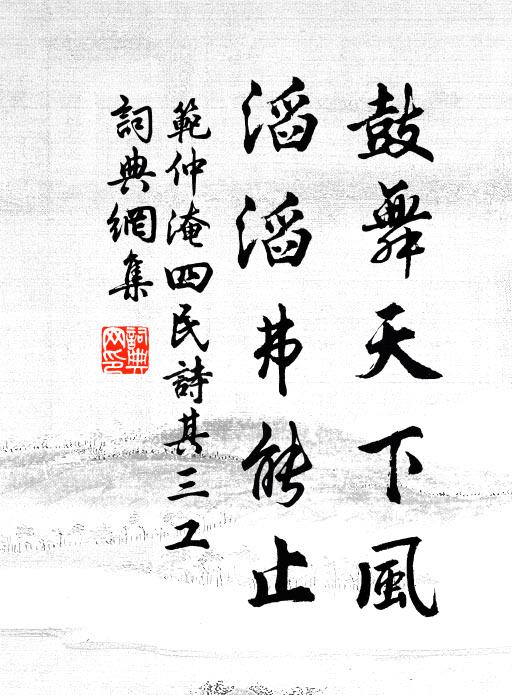 鼓舞天下風
滔滔弗能止
範仲淹四民詩其三工
詞典網集
詞典
网印